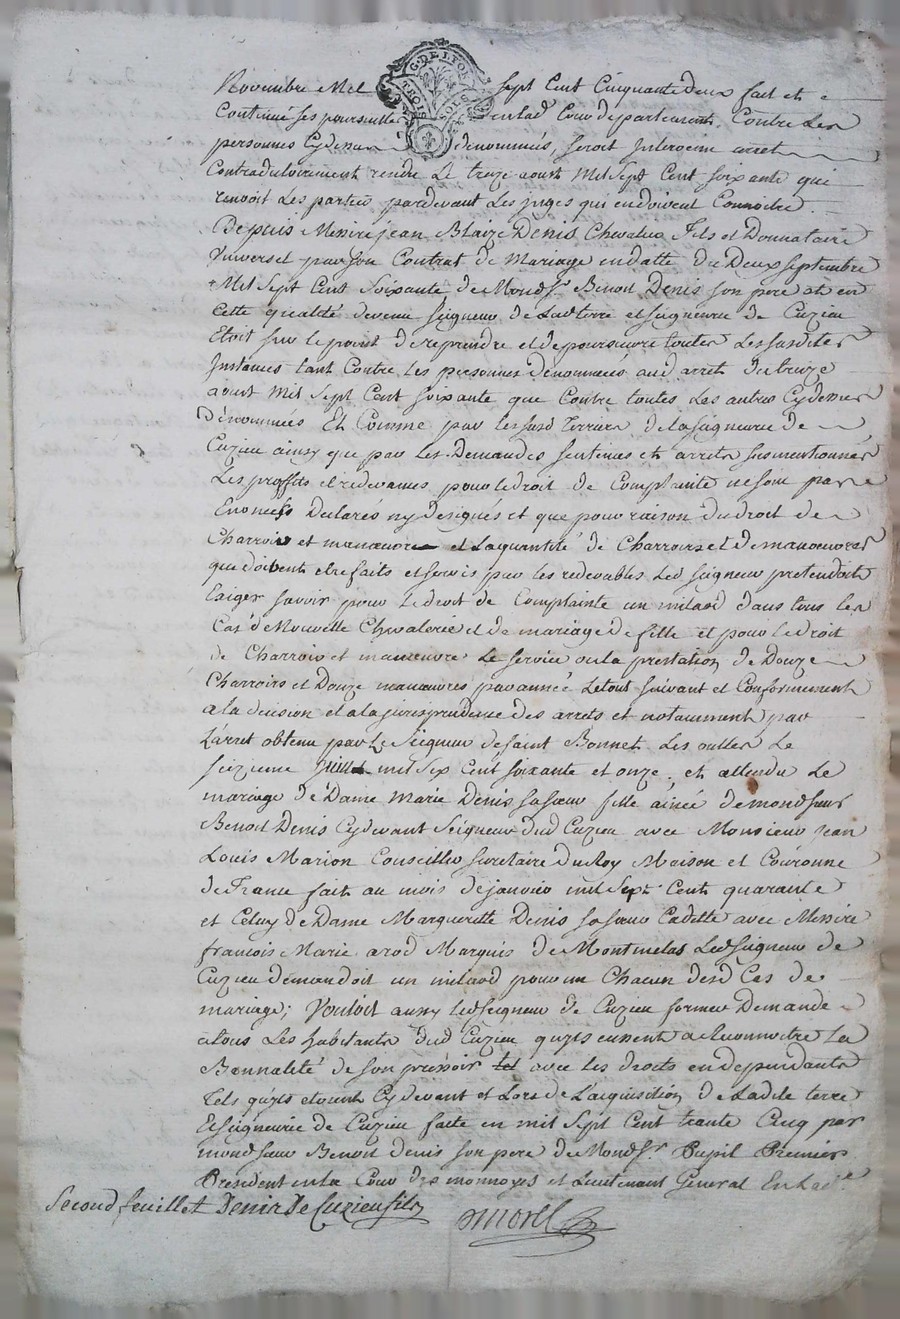 G. DE LYON
TROIS SOLS
Novembre Mil sept Cent Cinquante deux fait et
Continué ses poursuittes en lad Cour de parlement Contre Les
personnes Cydessus dénommées, seroit Intervenu arret
Contradictoirement rendu Le treze aoust Mil Sept Cent soixante qui
renvoit Les parties pardevant Les juges qui en doivent Connoitre.
Depuis Messire jean Blaize Denis Chevalier Fils et Donnataire
Universel par son Contrat de Mariage en datte du Deux septembre
Mil Sept Cent Soixante de Monds.r Benoit Denis son pere et en
Cette qualité devenu seigneur de Lad terre et seigneurie de Cuzieu
Etoit sur le point de reprendre et de poursuivre toutes Les susdites
Instances tant Contre Les personnes dénommées aud arret du treize
aoust Mil Sept Cent soixante que Contre toutes Les autres Cydessus
Dénommées Et Comme par les susd Terriers de la seigneurie de
Cuzieu ainsy que par Les Demandes sentences et arrets susmentionnés
Les proffits et redevances pour le droit de Complainte ne sont pas
Enoncés Declarés ny designés et que pour raison du droit de
Charrois et manœuvre et La quantité de Charroirs et de manœuvres
qui doivent etre faits et servis par les redevables Led seigneur pretendoit
Exiger savoir pour Le droit de Complainte un milaod dans tous les
Cas de Nouvelle Chevalerie et de mariage de fille et pour le droit
de Charrois et manœuvre Le service ou la prestation de Douze
Charroirs et Douze manœuvres par année Le tout suivant et Conformement
a la decision et a la jurisprudense des arrets et notamment par
L'arret obtenu par Le Seigneur de saint Bonnet Les oulles Le
seizieme juillet mil six Cent soixante et onze. et attendu Le
mariage de Dame Marie Denis sa sœur fille ainée de mondsieur
Benoit Denis Cydevant Seigneur dud Cuzieu avec Monsieur jean
Louis Marion Conseiller secretaire du Roy Maison et Couronne
de France fait au mois de janvier mil sept Cent quarante
et Celuy de Dame Marguerite Denis sa sœur Cadette avec Messire
francois Marie arod Marquis de Montmelas Led seigneur de
Cuzieu demandoit un milaod pour un Chacun desd Cas de
mariage; Vouloit aussy led seigneur de Cuzieu former Demande
a tous Les habitants dud Cuzieu qu'ils eussent a reconnoitre La
Bannalité de son pressoir avec les droits en dependants
Tels qu'ils etoient Cydevent et Lors de L'acquisition de Ladite terre
Et seigneurie de Cuzieu faite en mil Sept Cent trante Cinq par
mondsieur Benoit denis son pere de Monds.r Pupil Premier
President en la Cour des monnoyes et Lieutenant General En La
Second feuillet Denis de Cuzieu fils Morel